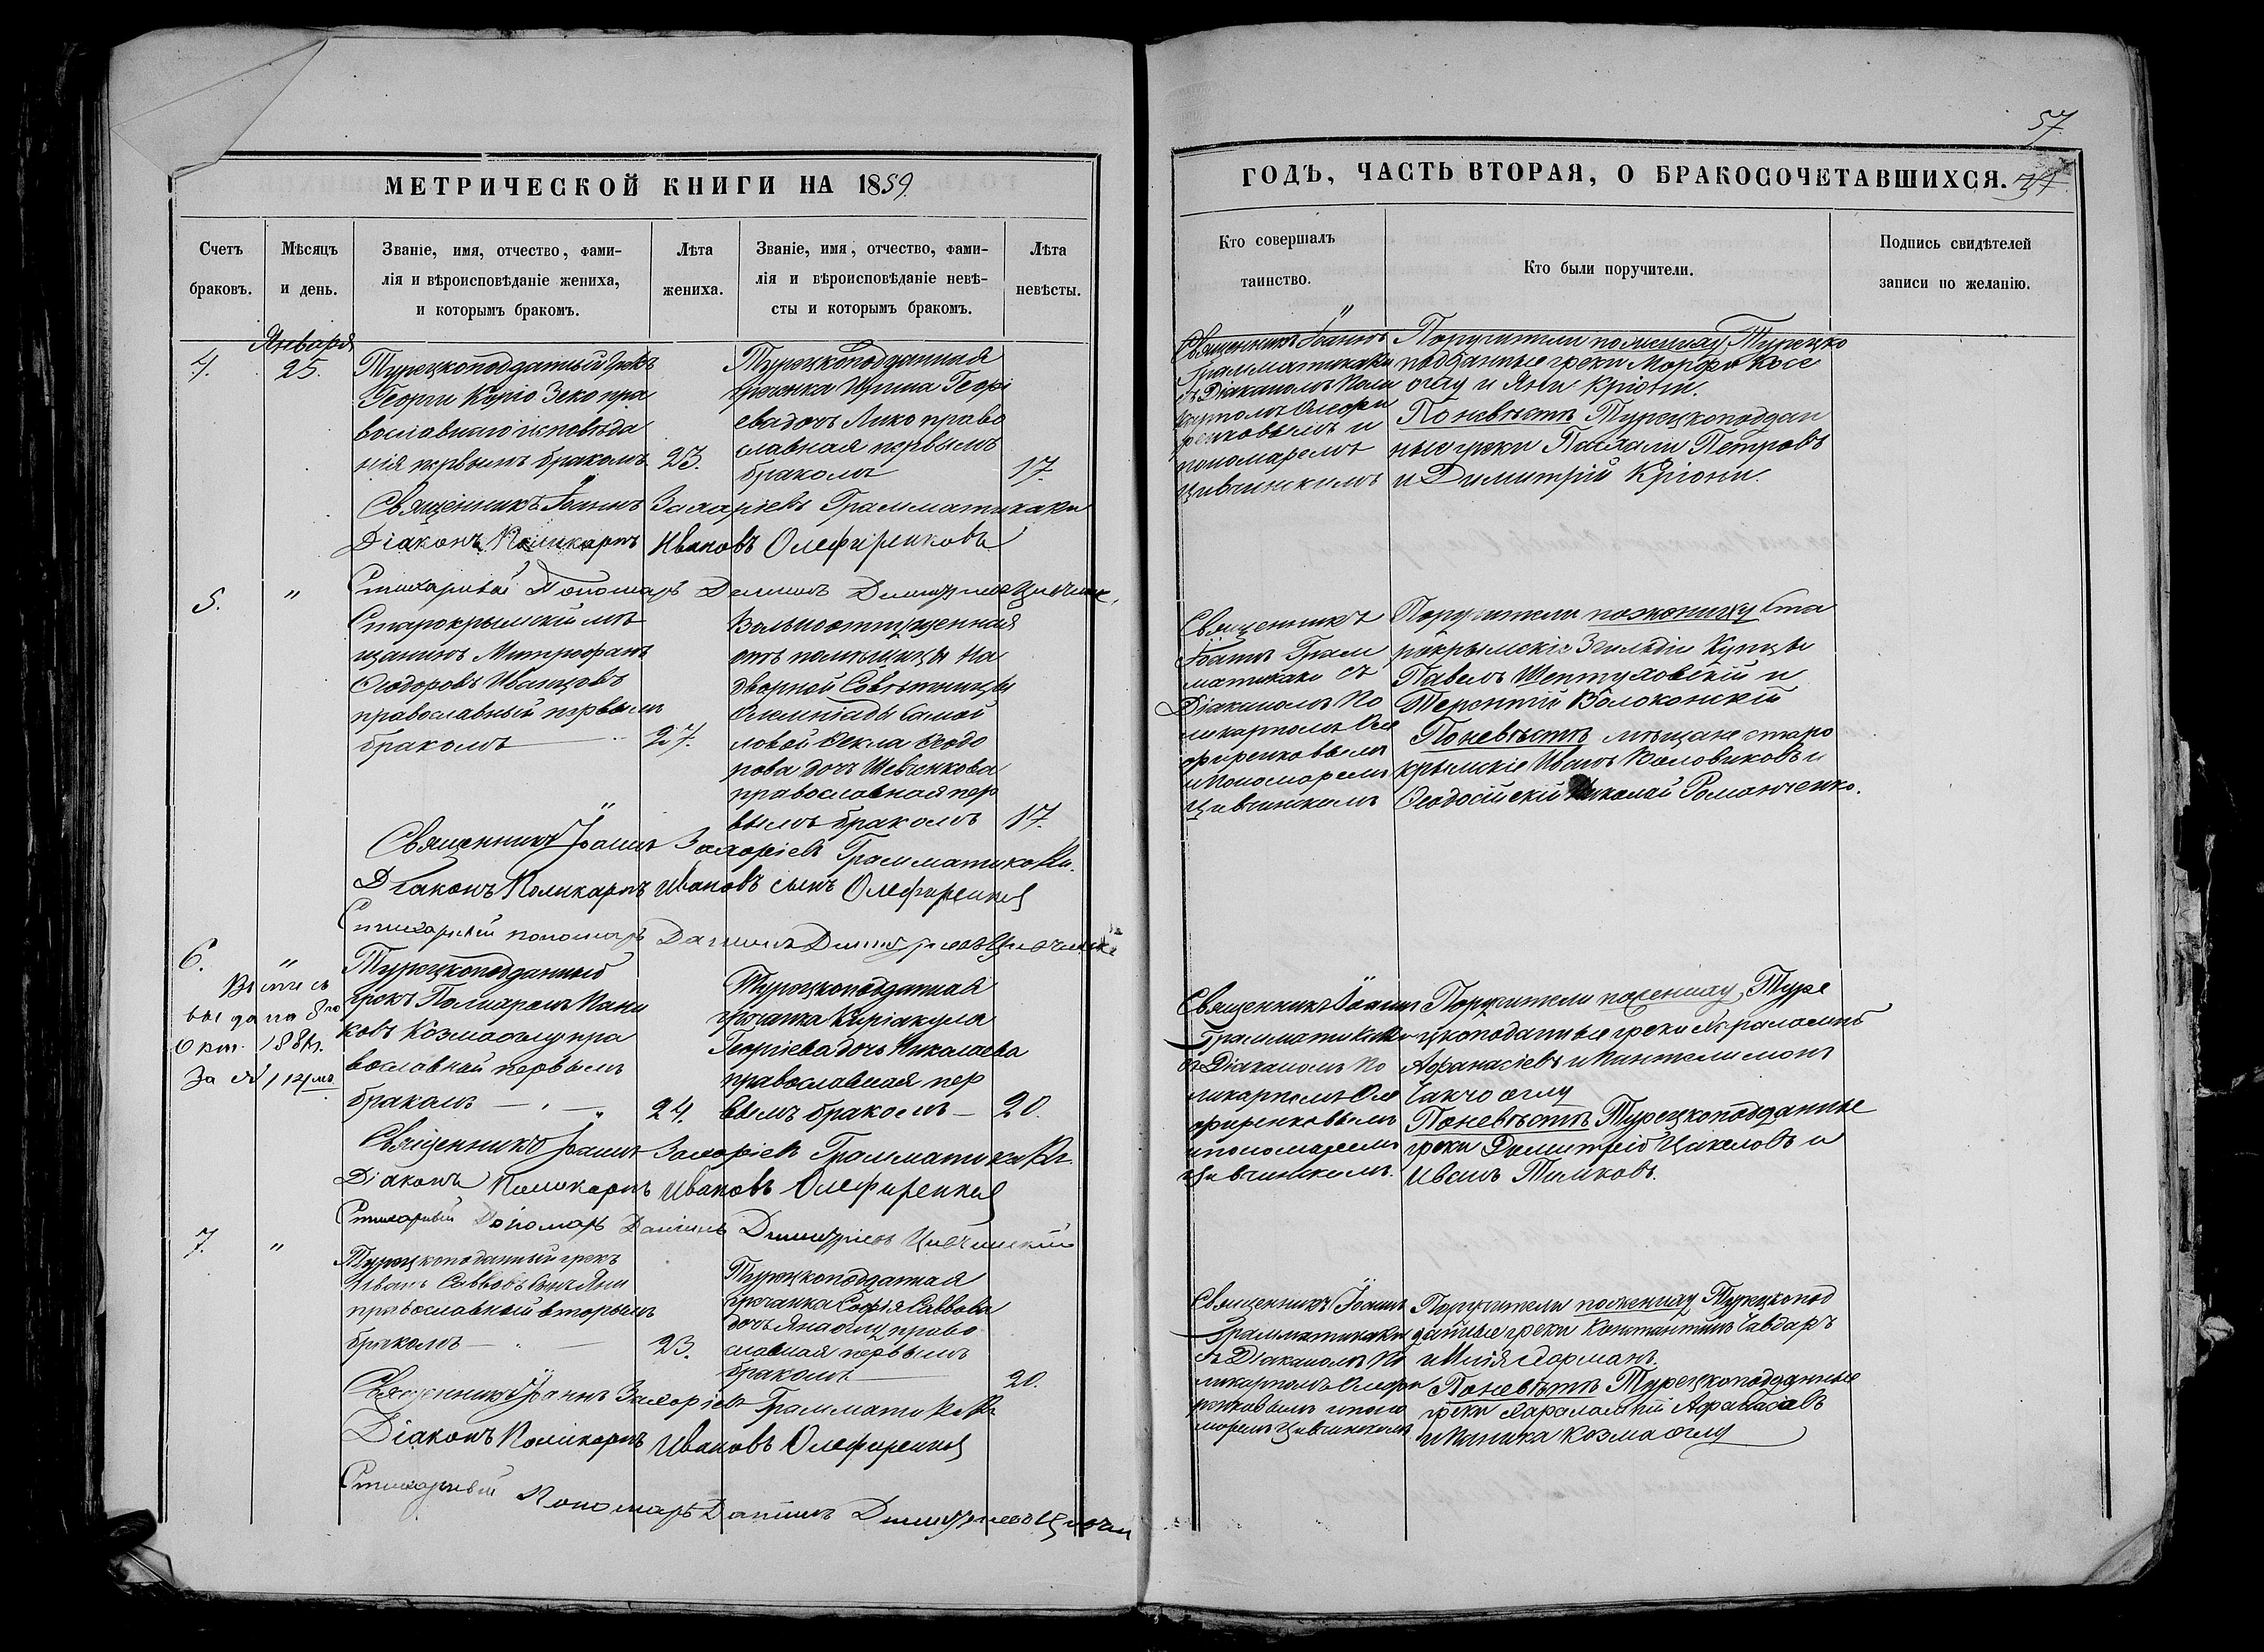 57
МЕТРИЧЕСКОЙ КНИГИ НА 1859.
ГОДЪ, ЧАСТЬ ВТОРАЯ, О БРАКОСОЧЕТАВШИХСЯ.
Счетъ
браковъ.
Мѣсяцъ
и день.
Званіе, имя, отчество, фами-
лія и вѣроисповѣданіе жениха,
и которымъ бракомъ.
Лѣта
жениха.
Званіе, имя, отчество, фами-
лія и вѣроисповѣданіе невѣ-
сты и которымъ бракомъ.
Лѣта
невѣсты.
Кто совершалъ
таинство.
Кто были поручители.
Подпись свидѣтелей
записи по желанію.
4.
Января
25.
Турецкоподданный Грекъ
Георги Карго Зеко пра
вославнаго исповѣда
нія первымъ бракомъ
23.
Турецкоподданная
Гречанка Ирина Георгі
ева дочь Лико право
славная первымъ
бракомъ
17.
Священникъ Іоаннъ
Грамматикаки
съ Діакономъ Поли
карпомъ Олефи
ренковымъ и
пономаремъ
Цивчинскимъ
Поручители по жениху Турецко
подданные греки Морфи Косе
оглу и Яни Кріони.
По невѣстѣ Турецкоподдан
ные греки Пасхали Петровъ
и Димитрій Кріони.
Священникъ Іоаннъ Захаріевъ Грамматикаки
Діаконъ Поликарпъ Ивановъ Олефиренковъ
Стихарный Пономарь Даніилъ Димитріевъ Цивчинск
5.
"
Старокрымскій мѣ
щанинъ Митрофанъ
Ѳодоровъ Иванцовъ
православный первымъ
бракомъ
27.
Вольноотпущенная
отъ помѣщицы На
дворной Совѣтницы
Олимпіады Самой
ловой Ѳекла Ѳеодо
рова дочь Шевченкова
православная пер
вымъ бракомъ
17.
Священникъ
Іоаннъ Грам
матикаки съ
Діакономъ По
ликарпомъ Оле
фиренковымъ
и Пономаремъ
Цивчинскимъ
Поручители по жениху Ста
рокрымскіе 3 гильдіи Купцы
Павелъ Шептуховскій и
Терентій Волоконскій
По невѣстѣ мѣщане старо
крымскіе Иванъ Коловиковъ и
Ѳеодосійскій Николай Романченко.
Священникъ Іоаннъ Захаріевъ Грамматикаки.
Діаконъ Поликарпъ Ивановъ сынъ Олефиренковъ
Стихарный пономарь Даніилъ Димитріевъ Цивчинск
6.
"
Выпись
выдана 8го
Окт. 188
За № 114
Турецкоподданный
грекъ
ковъ Козмаоглу пра
вославный первымъ
бракомъ
24.
Турецкоподданная
Гречанка Киріакула
Георгіева дочь Николаева
православная пер
вымъ бракомъ
20.
Священникъ Іоаннъ
Грамматикаки
съ Діакономъ По
ликарпомъ Оле
фиренковымъ
и пономаремъ
Цивчинскимъ.
Поручители по жениху Туре
цкоподданные греки Харалампій
Афанасіевъ и Пантелимонъ
Чакчооглу
По невѣстѣ Турецкоподданные
греки Димитрій Цакеловъ и
Иванъ Тилковъ.
Священникъ Іоаннъ Захаріевъ Грамматикаки.
Діаконъ Поликарпъ Ивановъ Олефиренковъ
Стихарный Пономарь Даніилъ Димитріевъ Цивчинскій
7.
"
Турецкоподданный грекъ
Иванъ Саввовъ сынъ Яни
православный вторымъ
бракомъ
23.
Турецкоподданная
Гречанка Софія Саввова
дочь Янаоглу право
славная первымъ
бракомъ
20.
Священникъ Іоаннъ
Грамматикаки
съ Діакономъ По
ликарпомъ Олефи
ренковымъ и поно
маремъ Цивчинскимъ
Поручители по жениху Турецкопод
данные греки Константинъ Чавдаръ
и Илія Дорманъ.
По невѣстѣ Турецкоподданные
греки Харалампій Афанасіевъ
и Паника Козмаоглу
Священникъ Іоаннъ Захаріевъ Грамматикаки
Діаконъ Поликарпъ Ивановъ Олефиренковъ
Стихарный Пономарь Даніилъ Димитріевъ Цивчин